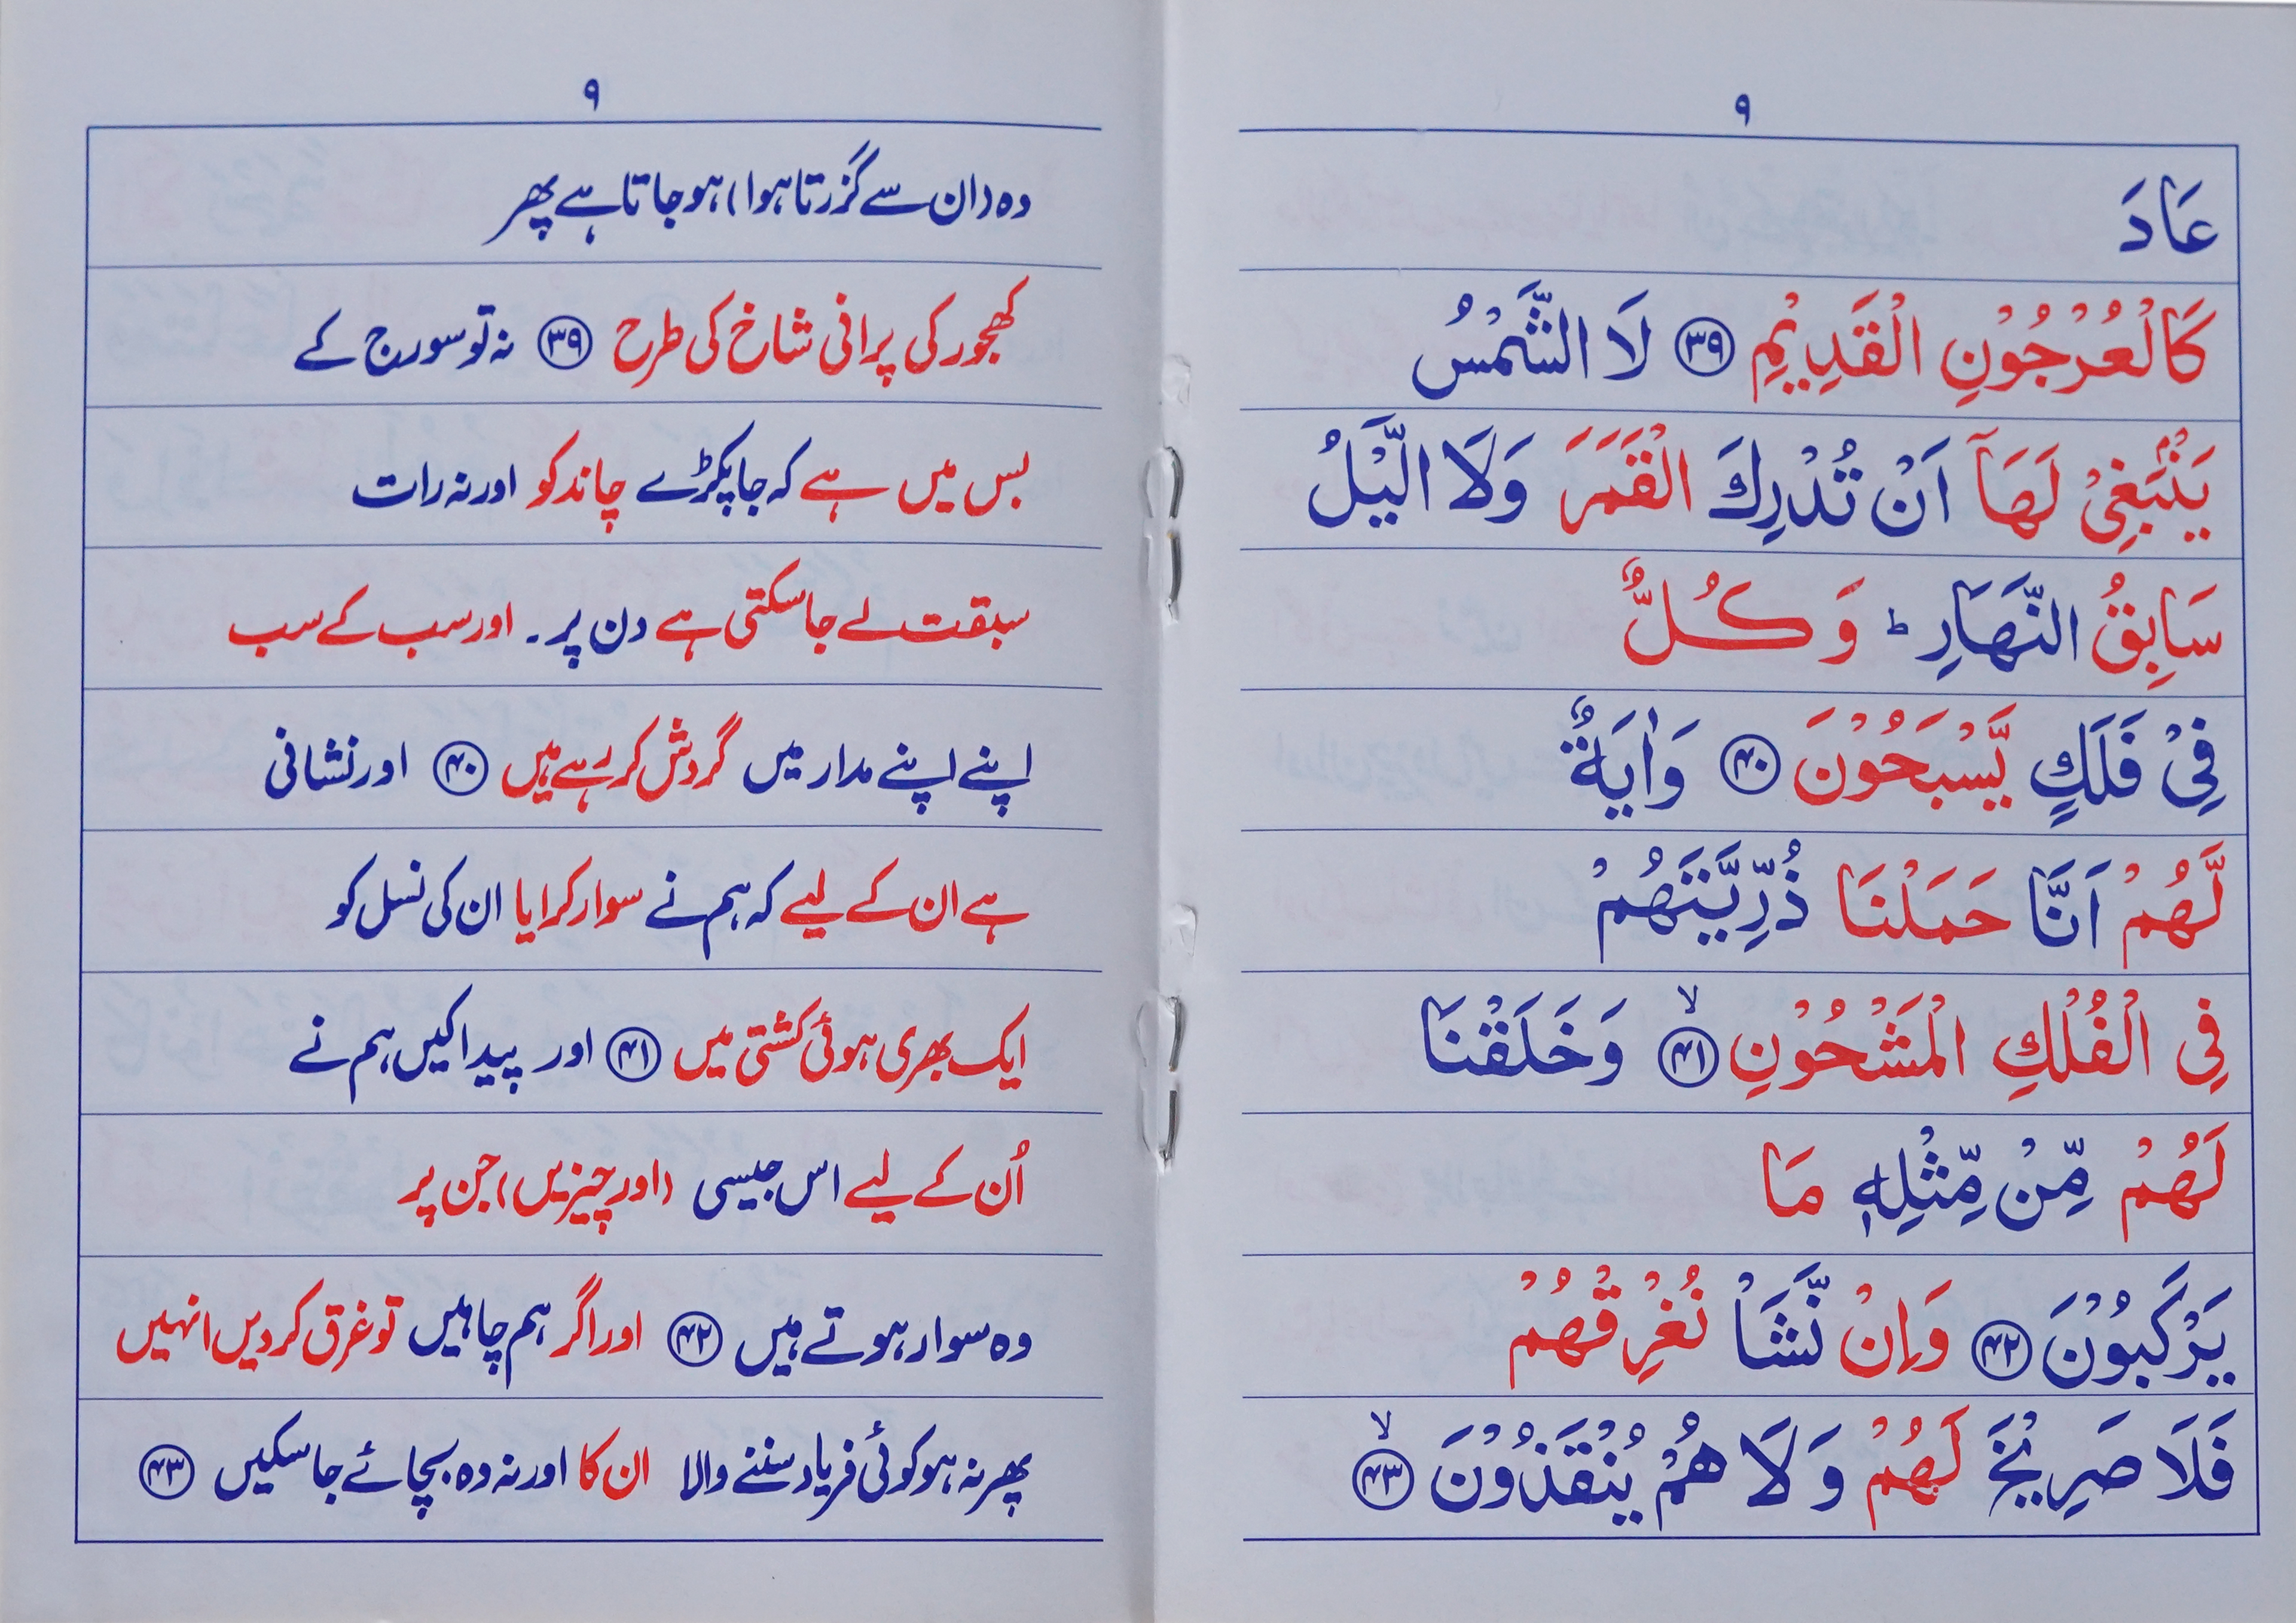 ۹
عَادَ
كَالْعُرْجُوْنِ الْقَدِيْمِ ۳۹ لَا الشَّمْسُ
يَنْۢبَغِيْ لَهَاۤ اَنْ تُدْرِكَ الْقَمَرَ وَلَا الَّيْلُ
سَابِقُ النَّهَارِ ؕ وَ كُلٌّ
فِيْ فَلَكٍ يَّسْبَحُوْنَ ۴۰ وَاٰيَةٌ
لَّهُمْ اَنَّا حَمَلْنَا ذُرِّيَّتَهُمْ
فِي الْفُلْكِ الْمَشْحُوْنِ ۙ ۴۱ وَخَلَقْنَا
لَهُمْ مِّنْ مِّثْلِهٖ مَا
يَرْكَبُوْنَ ۴۲ وَاِنْ نَّشَاْ نُغْرِقْهُمْ
فَلَا صَرِيْخَ لَهُمْ وَلَا هُمْ يُنْقَذُوْنَ ۙ ۴۳
۹
وہ (ان سے گزرتا ہوا) ہو جاتا ہے پھر
کھجور کی پرانی شاخ کی طرح ۳۹ نہ تو سورج کے
بس میں ہے کہ جا پکڑے چاند کو اور نہ رات
سبقت لے جا سکتی ہے دن پر۔ اور سب کے سب
اپنے اپنے مدار میں گردش کر رہے ہیں ۴۰ اور نشانی
ہے ان کے لیے کہ ہم نے سوار کرایا ان کی نسل کو
ایک بھری ہوئی کشتی میں ۴۱ اور پیدا کیں ہم نے
اُن کے لیے اس جیسی (اور چیزیں) جن پر
وہ سوار ہوتے ہیں ۴۲ اور اگر ہم چاہیں تو غرق کر دیں انہیں
پھر نہ ہو کوئی فریاد سننے والا ان کا اور نہ وہ بچائے جا سکیں ۴۳